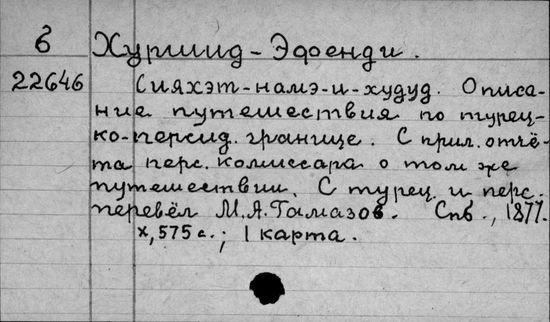 6 Хуршид-Эфенди.
22646 Сияхэт-намэ-и-худуд. Описа-
ние путешествия по турец-
ко-персид. границе. С прил. отчё-
та перс. комиссара о том же
путешествии. С турец. и перс.
перевёл М.А. Гамазов. Спб., 1877.
X, 575 с.; 1 карта.